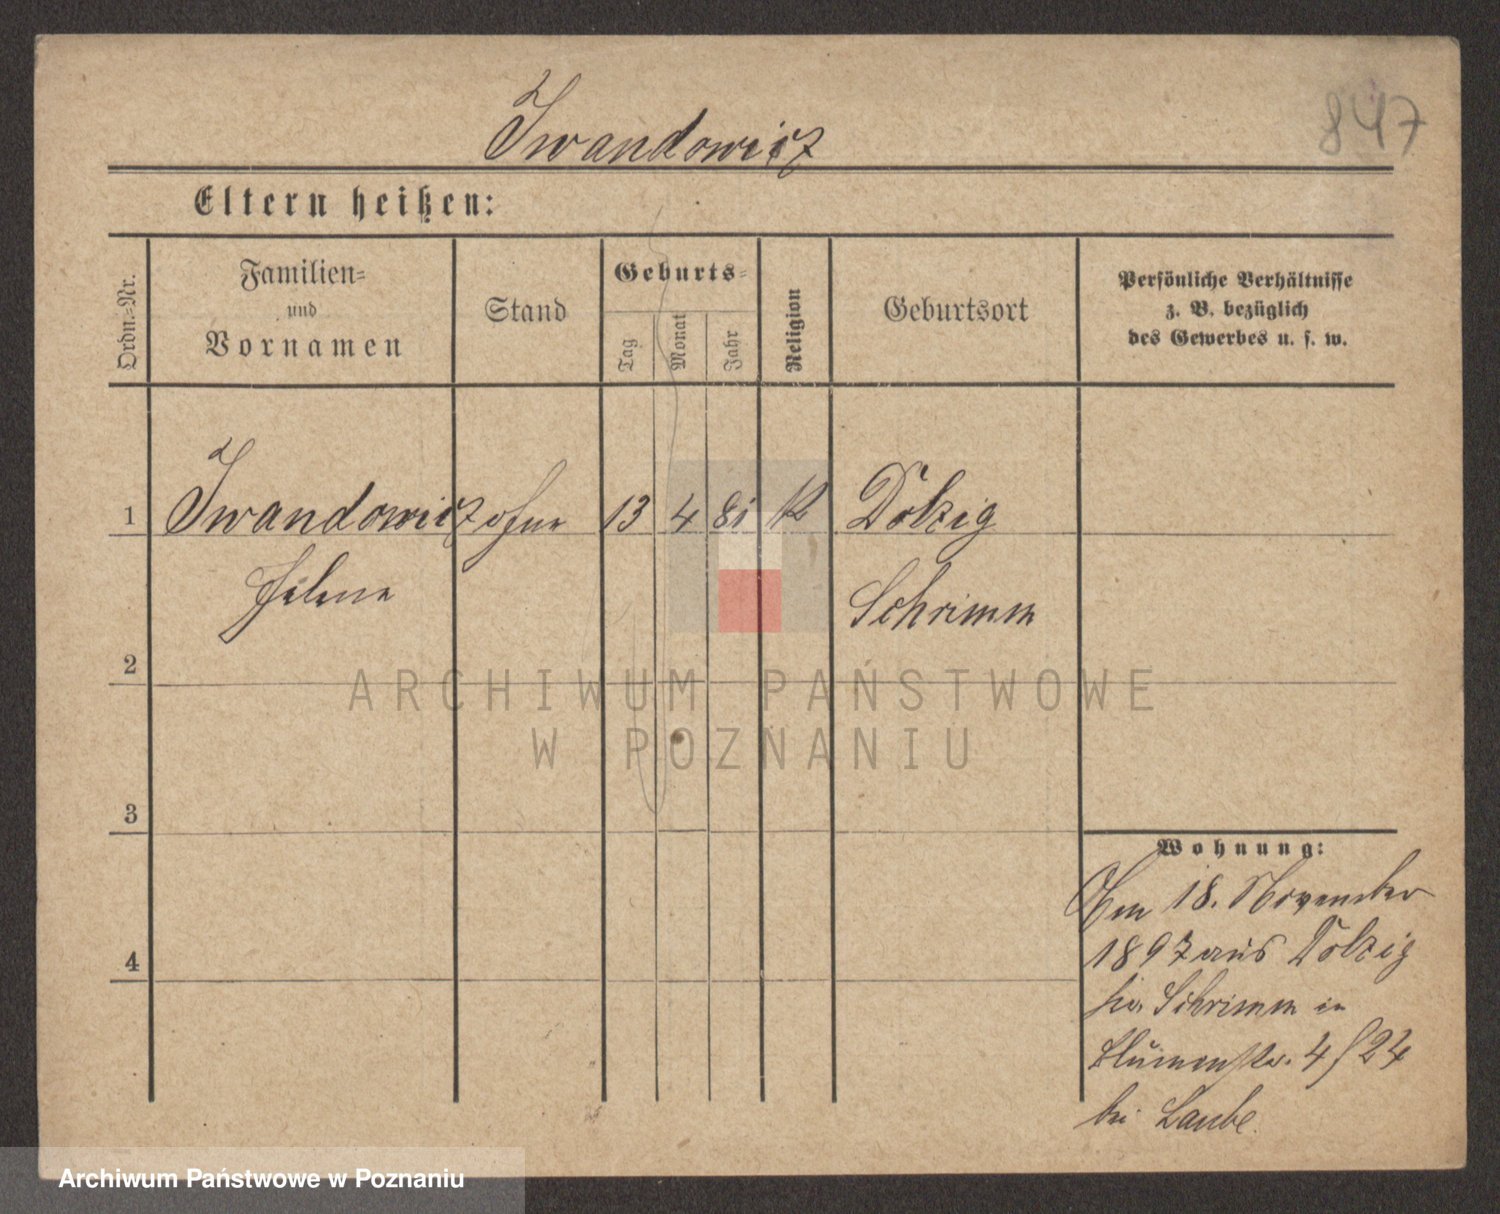 Iwandowicz
847
Eltern heißen:
Ordn.-Nr.
Familien-
und
Vornamen
Stand
Geburts-
Tag
Monat
Jahr
Religion
Geburtsort
Persönliche Verhältnisse
z. B. bezüglich
des Gewerbes u. s. w.
1 Iwandowicz ohne 13 4 81 K Dolzig
Helene Schrimm
2
ARCHIWUM PAŃSTWOWE
W POZNANIU
3
Wohnung:
18. November
4
1897 aus Dolzig
Schrimm in
Blumenstr. 4 / 24
bei Laube.
Archiwum Państwowe w Poznaniu